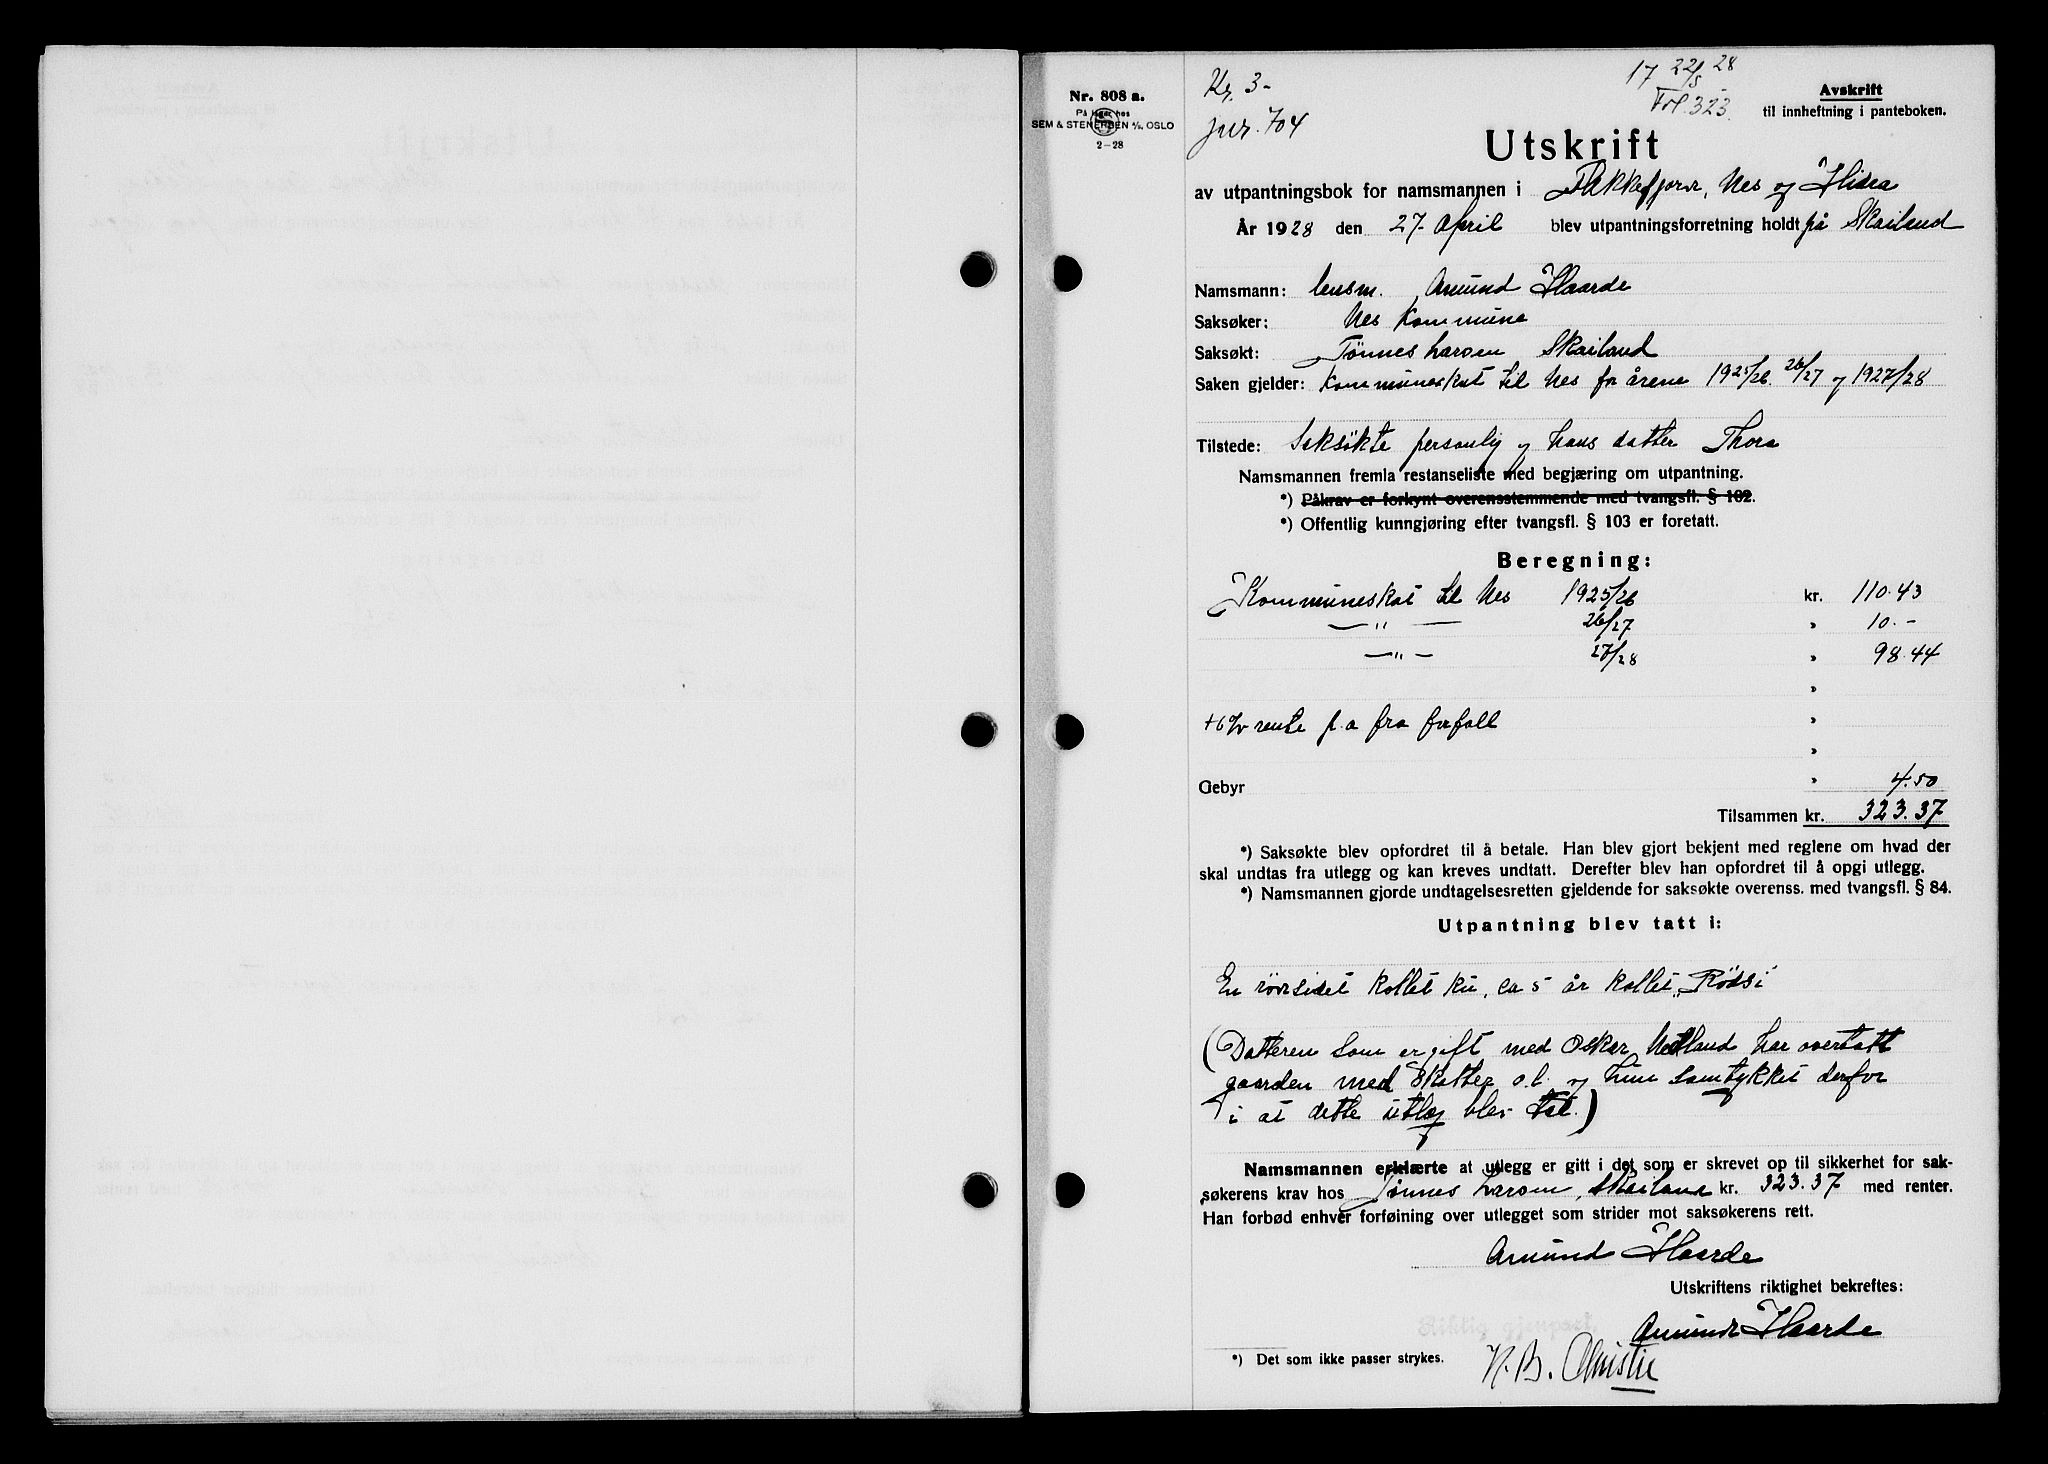 Nr. 808 a.
På lager hos
SEM & STENERSEN A/S, OSLO
2-28
Kr. 3-
jnr. 704
17 22/5 28
Fol. 323.
Avskrift
til innheftning i panteboken.
Utskrift
av utpantningsbok for namsmannen i Flekkefjord, Nes og Hidra
År 1928 den 27. April blev utpantningsforretning holdt på Skailand
Namsmann: lensm. Amund Haarde
Saksøker: Nes Kommune
Saksøkt: Tønnes Larsen Skailand
Saken gjelder: Kommuneskat til Nes for årene 1925/26 26/27 og 1927/28
Tilstede: Saksökte personlig og hans datter Thora
Namsmannen fremla restanseliste med begjæring om utpantning.
*) Påkrav er forkynt overensstemmende med tvangsfl. § 102.
*) Offentlig kunngjøring efter tvangsfl. § 103 er foretatt.
Beregning:
Kommuneskat til Nes 1925/26 kr. 110.43
— „ — 26/27 " 10.-
— „ — 27/28 " 98.44
"
+6 % rente p.a fra forfall "
"
Gebyr " 4.50
Tilsammen kr. 323.37
*) Saksøkte blev opfordret til å betale. Han blev gjort bekjent med reglene om hvad der
skal undtas fra utlegg og kan kreves undtatt. Derefter blev han opfordret til å opgi utlegg.
*) Namsmannen gjorde undtagelsesretten gjeldende for saksøkte overenss. med tvangsfl. § 84.
Utpantning blev tatt i:
En rödsidet kollet ku, ca 5 år kallet „Rödsi"
(Datteren som er gift med Oskar Nedland har overtatt
gaarden med Skatter o.l. og hun samtykket derfor
i at dette utlæg blev tat.)
Namsmannen erklærte at utlegg er gitt i det som er skrevet op til sikkerhet for sak-
søkerens krav hos Tønnes Larsen, Skailand kr. 323.37 med renter.
Han forbød enhver forføining over utlegget som strider mot saksøkerens rett.
Amund Haarde
Utskriftens riktighet bekreftes:
Riktig gjenpart.
Amund Haarde
*) Det som ikke passer strykes.
N. B. Christie